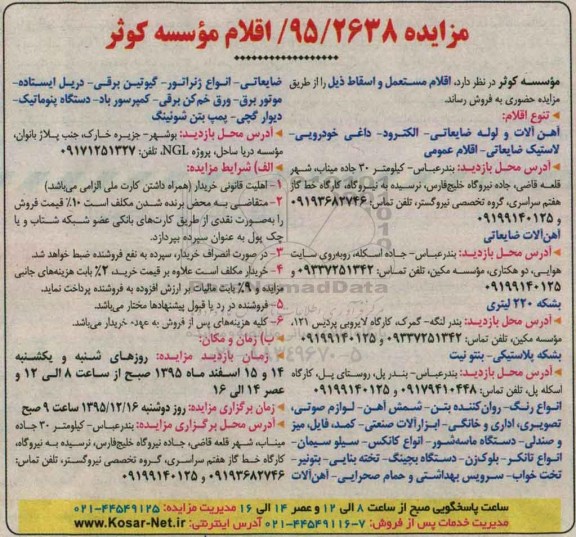 مزایده ۹۵/۲۶۳۸/ اقلام مؤسسه کوثر
مؤسسه کوثر در نظر دارد، اقلام مستعمل و اسقاط ذیل را از طریق
مزایده حضوری به فروش رساند.
تنوع اقلام:
آهن آلات و لوله ضایعاتی- الکترود- داغی خودرویی-
لاستیک ضایعاتی- اقلام عمومی
آدرس محل بازدید: بندرعباس- کیلومتر ۳۰ جاده میناب، شهر
قلعه قاضی، جاده نیروگاه خلیج‌فارس، نرسیده به نیروگاه، کارگاه خط گاز
هفتم سراسری، گروه تخصصی نیروگستر، تلفن تماس: ۰۹۱۹۳۶۸۲۷۴۶
و ۰۹۱۹۹۱۴۰۱۲۵
آهن‌آلات ضایعاتی
آدرس محل بازدید: بندرعباس- جاده اسکله، روبه‌روی سایت
هوایی، دو هکتاری، مؤسسه مکین، تلفن تماس: ۰۹۳۳۷۲۵۱۳۴۲ و
۰۹۱۹۹۱۴۰۱۲۵
بشکه ۲۲۰ لیتری
آدرس محل بازدید: بندر لنگه- گمرک، کارگاه لایروبی پردیس ۱۲۱،
مؤسسه مکین، تلفن تماس: ۰۹۳۳۷۲۵۱۳۴۲ و ۰۹۱۹۹۱۴۰۱۲۵
بشکه پلاستیکی- بنتونیت
آدرس محل بازدید: بندرعباس- بندر پل، روستای پل، کارگاه
اسکله پل، تلفن تماس: ۰۹۱۷۹۴۱۰۴۴۸ و ۰۹۱۹۹۱۴۰۱۲۵
انواع رنگ- روان‌کننده بتن- شمش آهن- لوازم صوتی،
تصویری، اداری و خانگی- ابزارآلات صنعتی- کمد، فایل، میز
و صندلی- دستگاه ماسه‌شور- انواع کانکس- سیلو سیمان-
انواع تانکر- بلوک‌زن- دستگاه بچینگ- تخته بنایی- بتونیر-
تخت خواب- سرویس بهداشتی و حمام صحرایی- آهن‌آلات
ضایعاتی- انواع ژنراتور- گیوتین برقی- دریل ایستاده-
موتور برق- ورق خم‌کن برقی- کمپرسور باد- دستگاه پنوماتیک-
دیوار گچی- پمپ بتن شوئینگ
آدرس محل بازدید: بوشهر- جزیره خارک، جنب پلاژ بانوان،
مؤسسه دریا ساحل، پروژه NGL، تلفن: ۰۹۱۷۱۲۵۱۳۲۷
الف) شرایط مزایده:
۱- اهلیت قانونی خریدار (همراه داشتن کارت ملی الزامی می‌باشد)
۲- متقاضی به محض برنده شدن مکلف است ۱۰٪ قیمت فروش
را به‌صورت نقدی از طریق کارت‌های بانکی عضو شبکه شتاب و یا
چک پول به عنوان سپرده بپردازد.
۳- در صورت انصراف خریدار، سپرده به نفع فروشنده ضبط خواهد شد.
۴- خریدار مکلف است علاوه بر قیمت خرید، ۲٪ بابت هزینه‌های جانبی
مزایده و ۹٪ بابت مالیات بر ارزش افزوده به فروشنده پرداخت نماید.
۵- فروشنده در رد یا قبول پیشنهادها مختار می‌باشد.
۶- کلیه هزینه‌های پس از فروش به عهده خریدار می‌باشد.
ب) زمان و مکان:
زمان بازدید مزایده: روزهای شنبه و یکشنبه
۱۴ و ۱۵ اسفند ماه ۱۳۹۵ صبح از ساعت ۸ الی ۱۲ و
عصر ۱۴ الی ۱۶
زمان برگزاری مزایده: روز دوشنبه ۱۳۹۵/۱۲/۱۶ ساعت ۹ صبح
آدرس محل برگزاری مزایده: بندرعباس- کیلومتر ۳۰ جاده
میناب، شهر قلعه قاضی، جاده نیروگاه خلیج‌فارس، نرسیده به نیروگاه،
کارگاه خط گاز هفتم سراسری، گروه تخصصی نیروگستر، تلفن تماس:
۰۹۱۹۳۶۸۲۷۴۶ و ۰۹۱۹۹۱۴۰۱۲۵
ساعت پاسخگویی صبح از ساعت ۸ الی ۱۲ و عصر ۱۴ الی ۱۶ مدیریت مزایده: ۴۴۵۴۹۱۲۵-۰۲۱
مدیریت خدمات پس از فروش: ۷-۴۴۵۴۹۱۱۶-۰۲۱ آدرس اینترنتی: www.Kosar-Net.ir